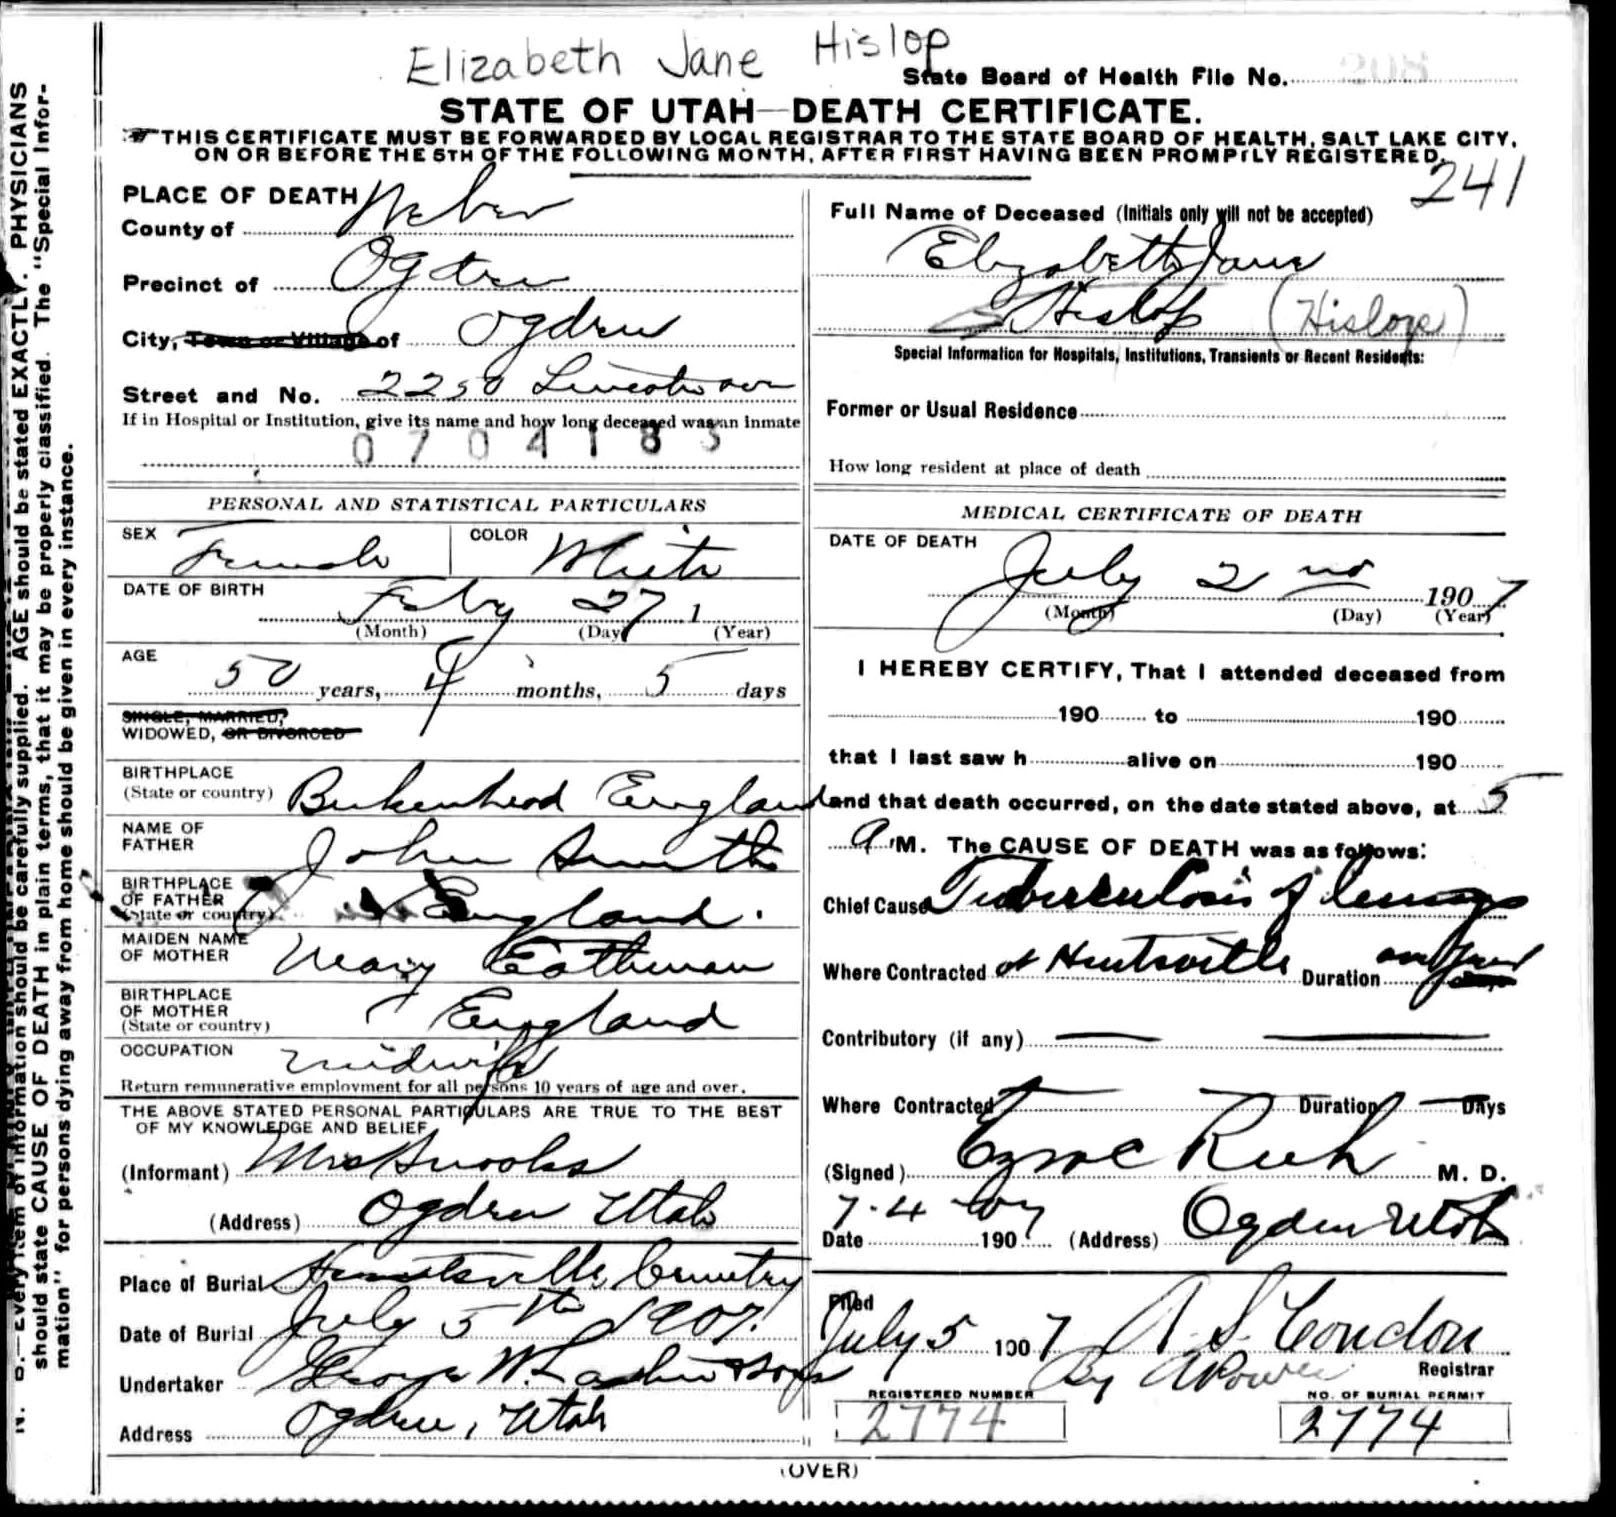 Elizabeth Jane Hislop
State Board of Health File No. 208
STATE OF UTAH—DEATH CERTIFICATE.
THIS CERTIFICATE MUST BE FORWARDED BY LOCAL REGISTRAR TO THE STATE BOARD OF HEALTH, SALT LAKE CITY,
ON OR BEFORE THE 5TH OF THE FOLLOWING MONTH, AFTER FIRST HAVING BEEN PROMPTLY REGISTERED.
241
PLACE OF DEATH
County of Weber
Precinct of Ogden
City, Town or Village of Ogden
Street and No. 2250 Lincoln ave
If in Hospital or Institution, give its name and how long deceased was an inmate
0704183
PERSONAL AND STATISTICAL PARTICULARS
SEX Female COLOR White
DATE OF BIRTH Feby 27 1
(Month) (Day) (Year)
AGE
50 years, 4 months, 5 days
SINGLE, MARRIED,
WIDOWED, OR DIVORCED
BIRTHPLACE
(State or country) Birkenhead England
NAME OF
FATHER John Smith
BIRTHPLACE
OF FATHER
(State or country) England.
MAIDEN NAME
OF MOTHER Mary
BIRTHPLACE
OF MOTHER
(State or country) England
OCCUPATION midwife
Return remunerative employment for all persons 10 years of age and over.
THE ABOVE STATED PERSONAL PARTICULARS ARE TRUE TO THE BEST
OF MY KNOWLEDGE AND BELIEF
(Informant) Mrs
(Address) Ogden Utah
Place of Burial Huntsville Cemetry
Date of Burial July 5th 1907.
Undertaker George W. Larkin & Sons
Address Ogden, Utah
Full Name of Deceased (Initials only will not be accepted)
Elizabeth Jane
Hislop (Hislope)
Special Information for Hospitals, Institutions, Transients or Recent Residents:
Former or Usual Residence
How long resident at place of death
MEDICAL CERTIFICATE OF DEATH
DATE OF DEATH
July 2nd 1907
(Month) (Day) (Year)
I HEREBY CERTIFY, That I attended deceased from
190 to 190
that I last saw h alive on 190
and that death occurred, on the date stated above, at 5
A.M. The CAUSE OF DEATH was as follows:
Chief Cause Tuberculosis of lungs
Where Contracted at Huntsville Duration
Contributory (if any)
Where Contracted Duration Days
(Signed) Ezra C Rich M. D.
7-4-07
Date 190 (Address) Ogden Utah
Filed
July 5 1907 A. S. Condon
By Registrar
REGISTERED NUMBER NO. OF BURIAL PERMIT
2774 2774
(OVER)
N. B.—Every item of information should be carefully supplied. AGE should be stated EXACTLY. PHYSICIANS
should state CAUSE OF DEATH in plain terms, that it may be properly classified. The "Special Infor-
mation" for persons dying away from home should be given in every instance.